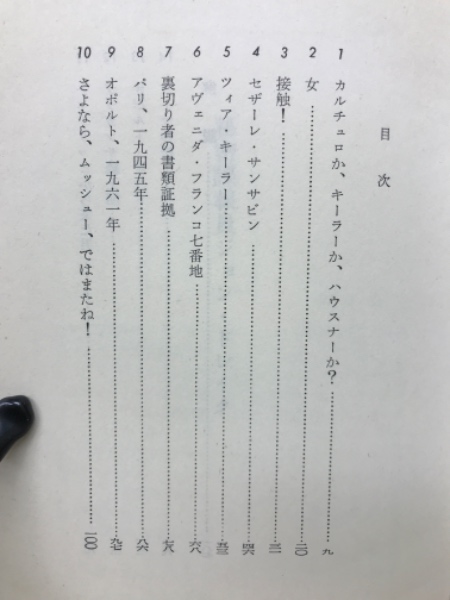 目次
1 カルチュロか、キーラーか、ハウスナーか?……九
2 女……二〇
3 接触!……三一
4 セザーレ・サンサビン……四六
5 ツィア・キーラー……五三
6 アヴェニダ・フランコ七番地……六八
7 裏切り者の書類証拠……七八
8 パリ、一九四五年……八六
9 オポルト、一九六一年……九七
10 さよなら、ムッシュー、ではまたね!……一〇〇